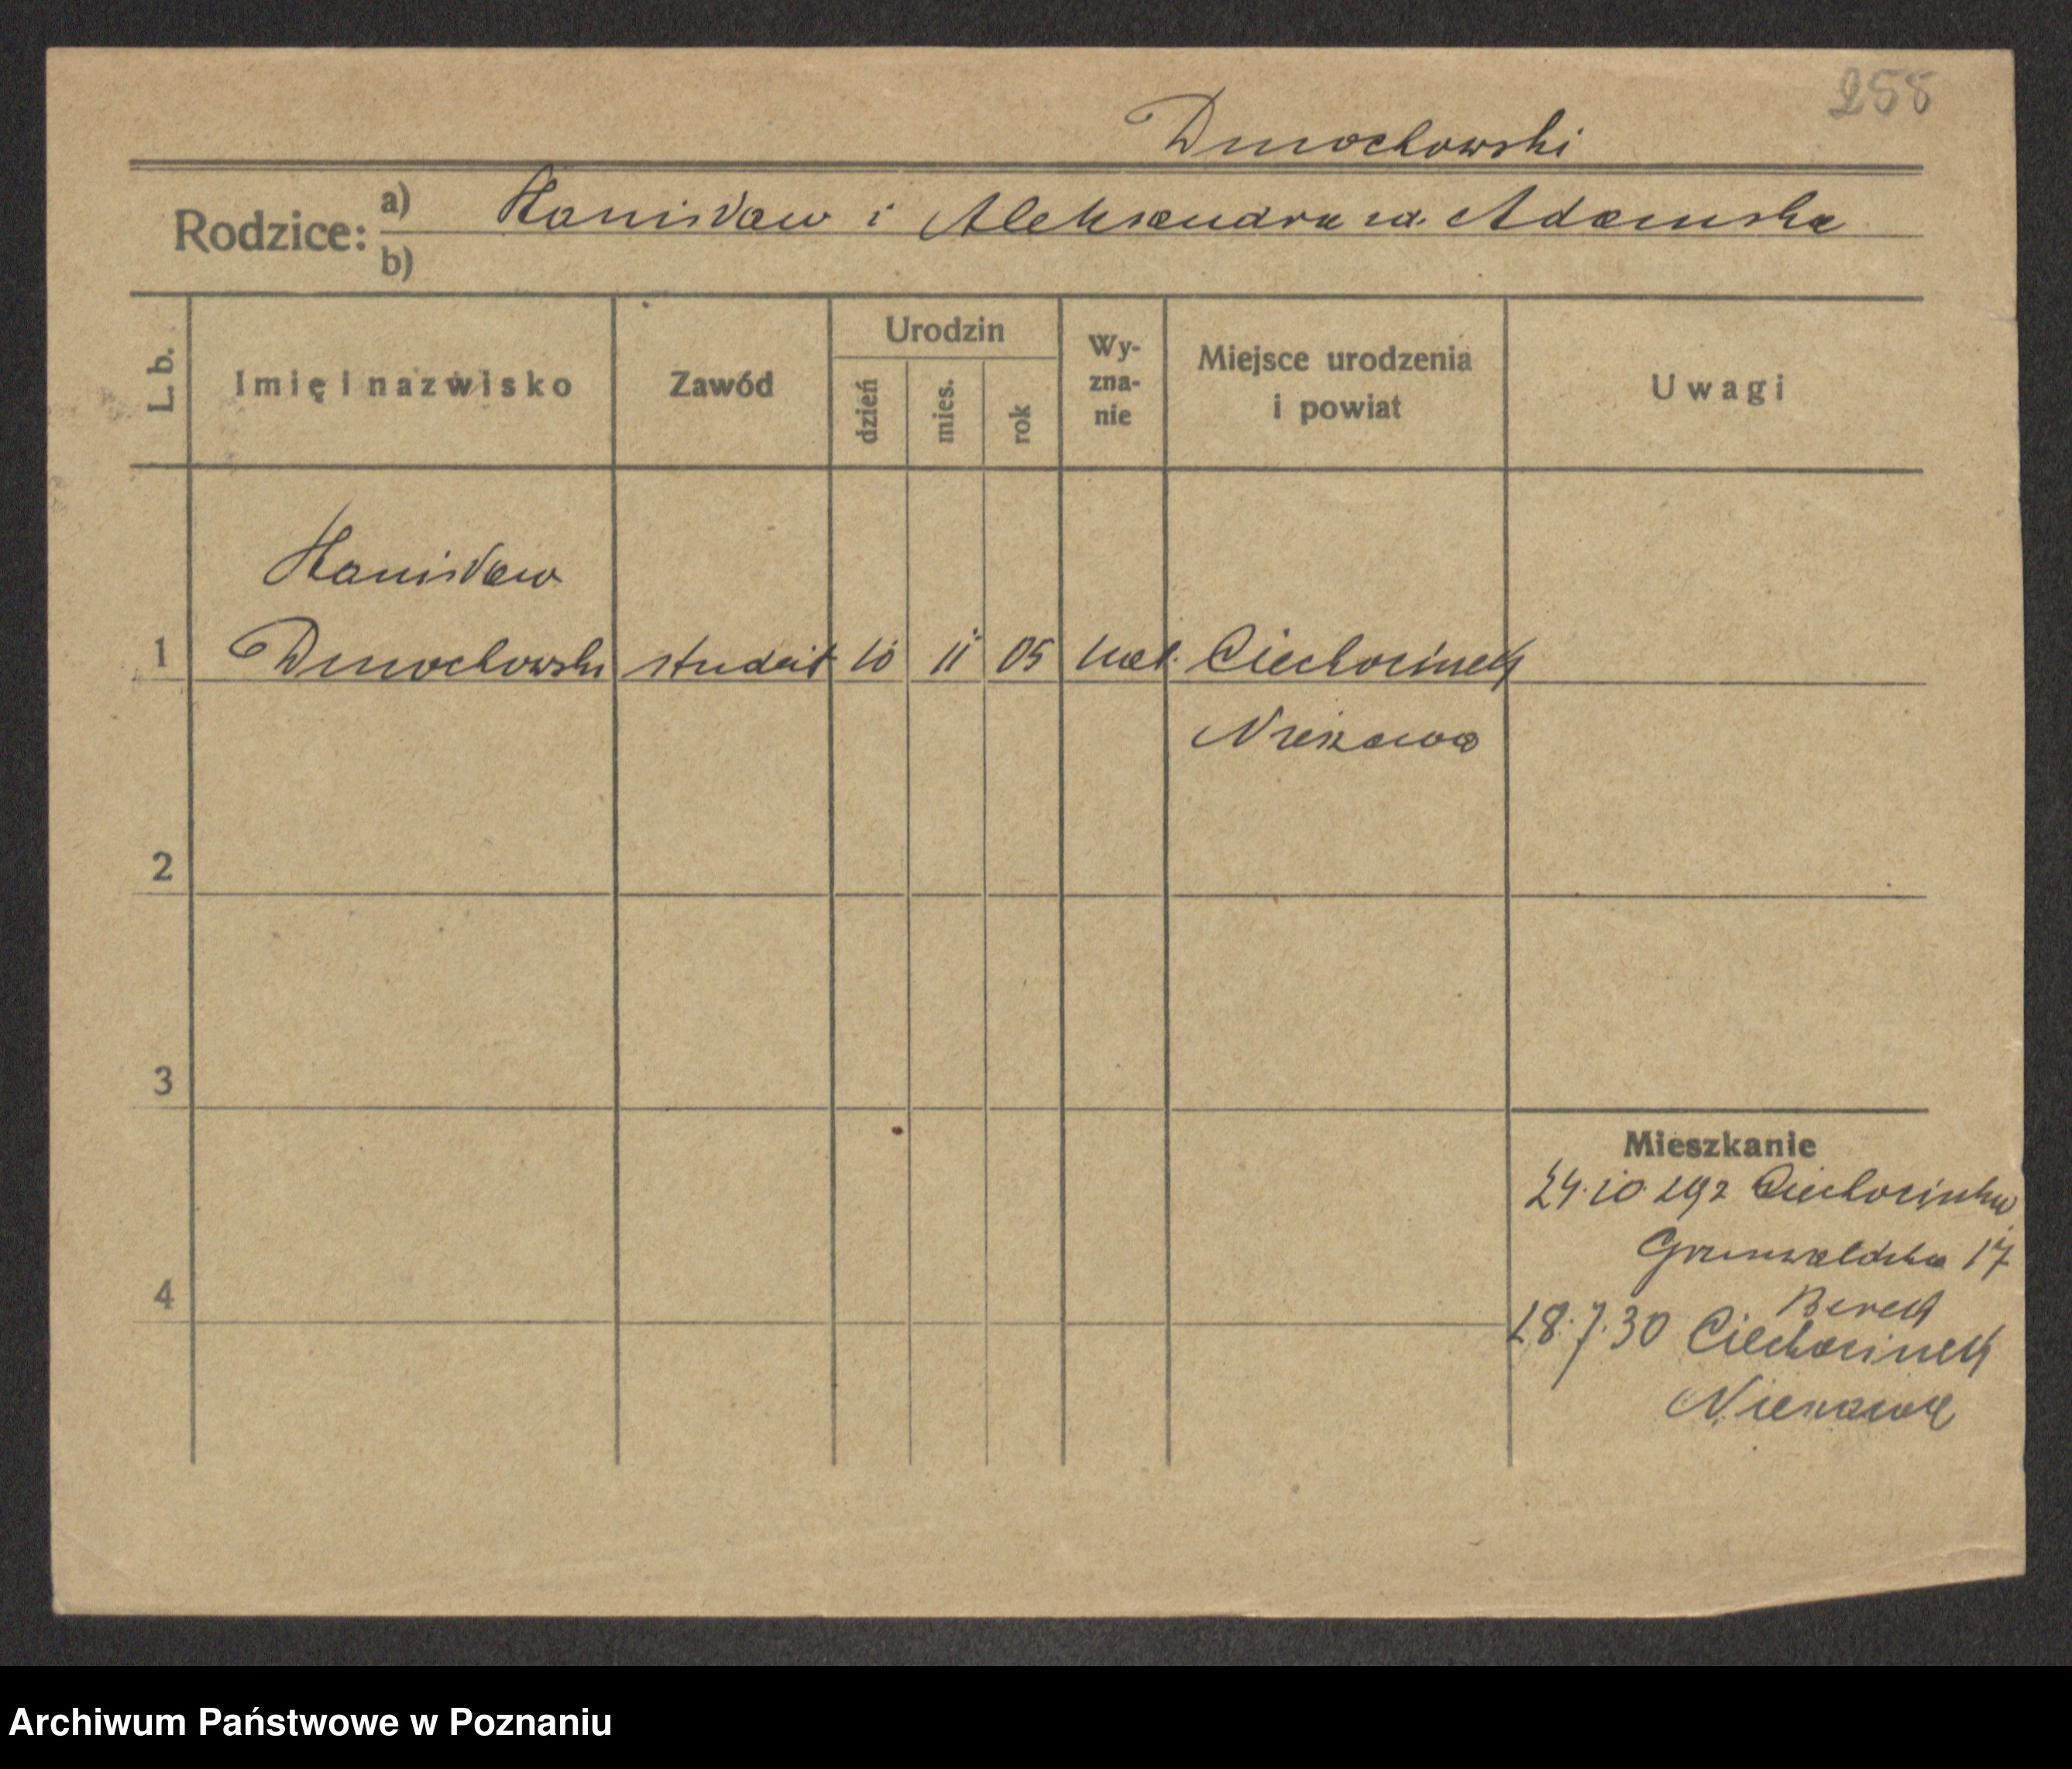 258
Dmochowski
Rodzice: a) Stanisław i Aleksandra zd. Adamska
b)
L. b. Imię i nazwisko Zawód Urodzin dzień mies. rok Wy-zna-nie Miejsce urodzenia i powiat Uwagi
Stanisław
1 Dmochowski student 10 11 05 kat. Ciechocinek
Nieszawa
2
3
Mieszkanie
24.10.192 Ciechocinka
Grunwaldzka 17
4
Berek
28.7.30 Ciechocinek
Nieszawa
Archiwum Państwowe w Poznaniu